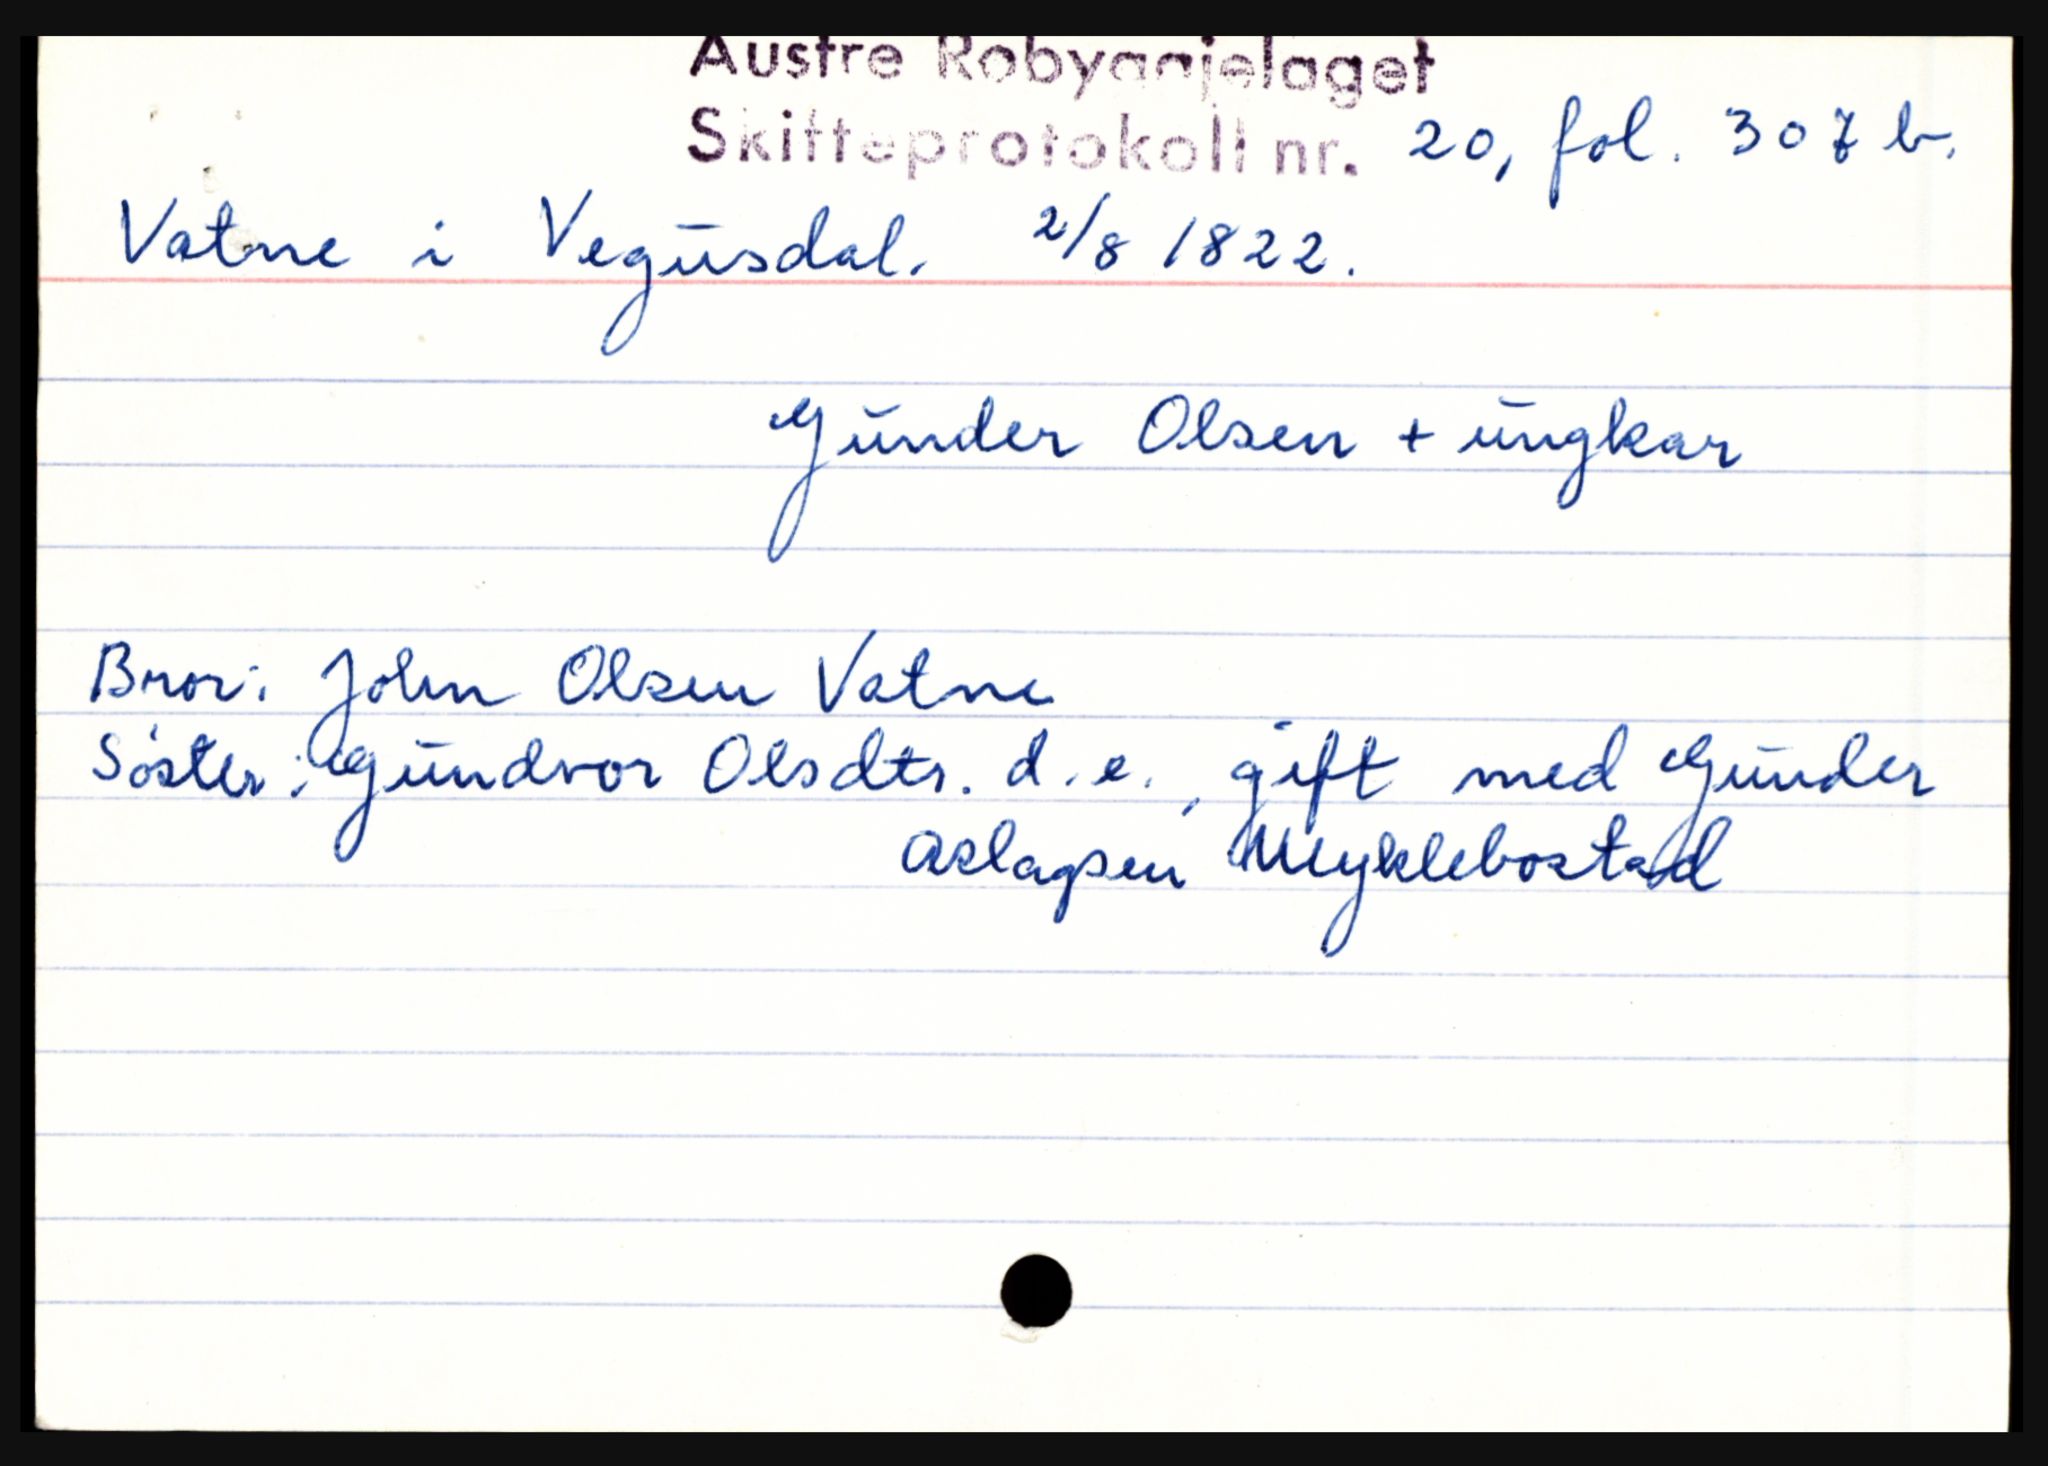 Austre Robyggjelaget
Skifteprotokoll nr. 20, fol. 307 b.
Vatne i Vegusdal. 2/8 1822.
Gunder Olsen + ungkar
Bror: John Olsen Vatne
Söster: Gundvor Olsdtr. d.e., gift med Gunder
Aslagsen Myklebostad